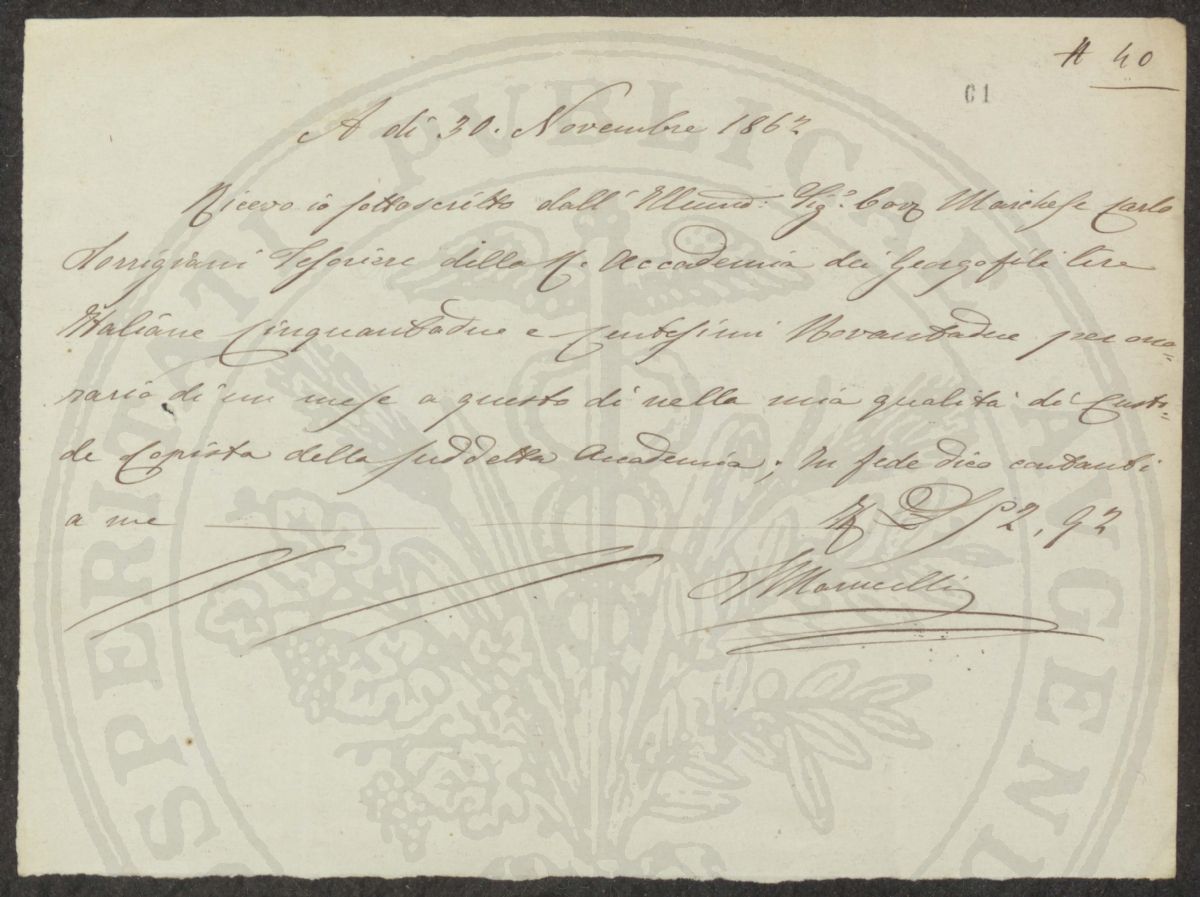 A 40
61
A dì 30. Novembre 1862
Ricevo io sottoscritto dall' Illmo: Sig.r Cav Marchese Carlo
Torrigiani Tesoriere della R. Accademia dei Georgofili lire
Italiane Cinquantadue e Centesimi Novantadue per ono=
rario di un mese a questo dì nella mia qualità di Custo=
de Copista della suddetta Accademia; In fede dico contanti
a me 52,92
Marucelli
PROSPERITATI PVBLICAE AVGENDAE